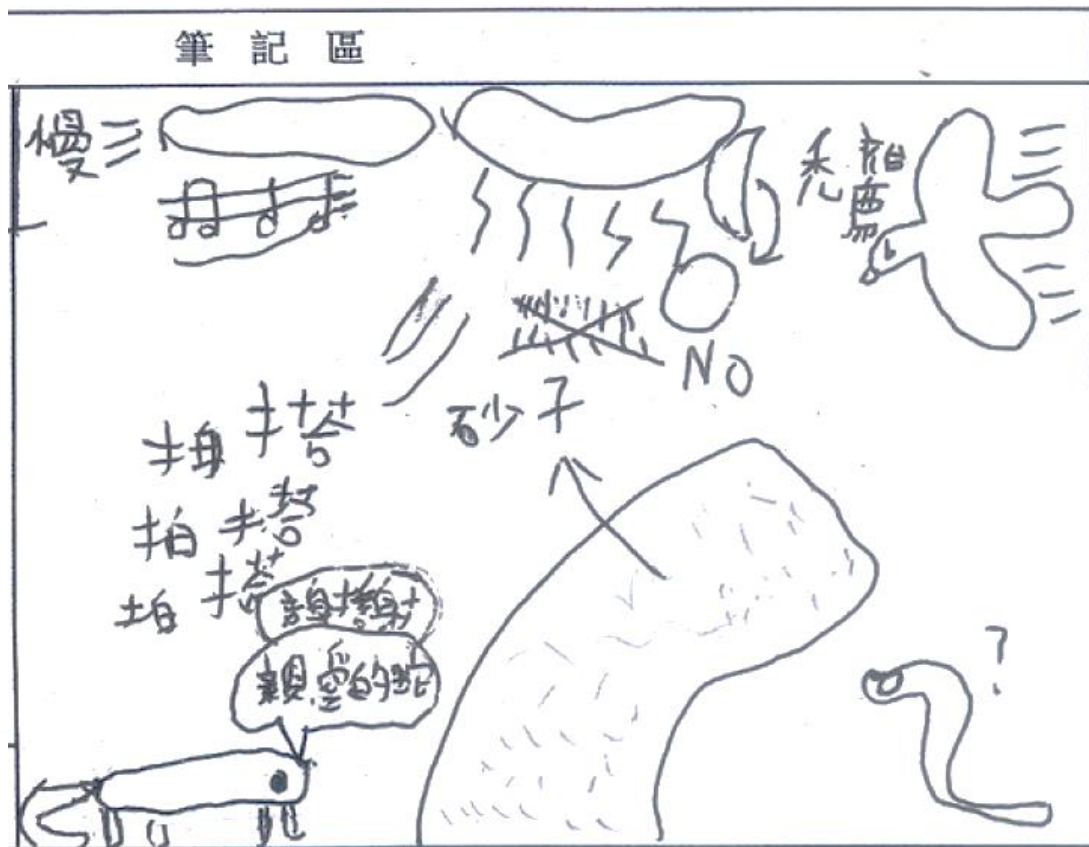 筆記區
慢
禿鷹
NO
砂子
拍搭
拍搭
拍搭
謝謝
親愛的蛇
?